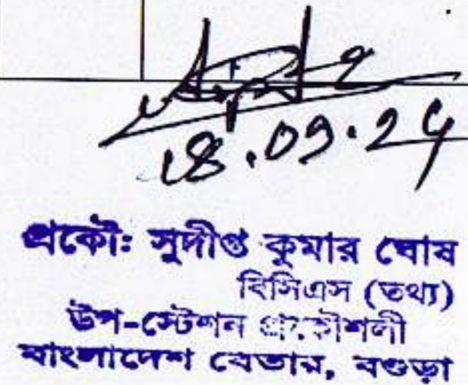 18.09.24
প্রকৌঃ সুদীপ্ত কুমার ঘোষ
বিসিএস (তথ্য)
উপ-স্টেশন প্রকৌশলী
বাংলাদেশ বেতার, বগুড়া